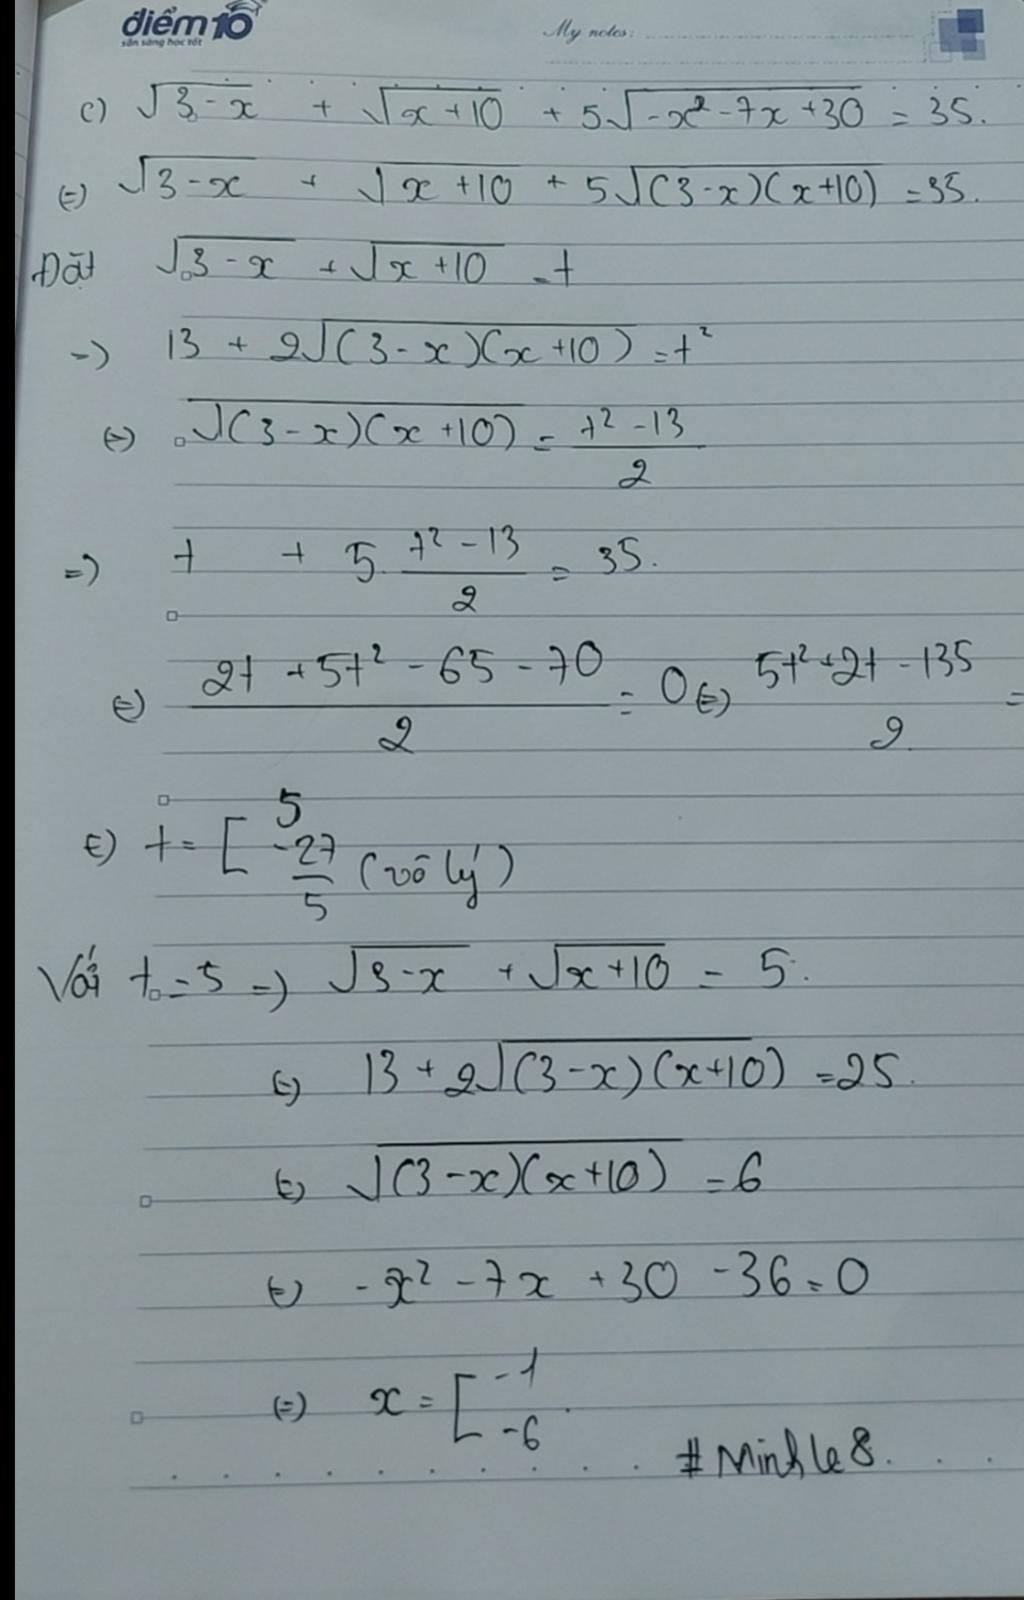 điểm10
sẵn sàng học tốt
My notes:
c) √(3-x) + √(x+10) + 5√(-x²-7x+30) = 35.
(=) √(3-x) + √(x+10) + 5√((3-x)(x+10)) = 35.
Đặt √(3-x) + √(x+10) = t
=) 13 + 2√((3-x)(x+10)) = t²
(=) √((3-x)(x+10)) = (t²-13)/2
=) t + 5. (t²-13)/2 = 35.
(=) (2t+5t²-65-70)/2 = 0 (=) (5t²+2t-135)/2 =
(=) t = [ 5
-27/5 (vô lý)
Với t = 5 =) √(3-x) + √(x+10) = 5.
(=) 13 + 2√((3-x)(x+10)) = 25.
(=) √((3-x)(x+10)) = 6
(=) -x² - 7x + 30 - 36 = 0
(=) x = [ -1
-6.
# Minh le 8.